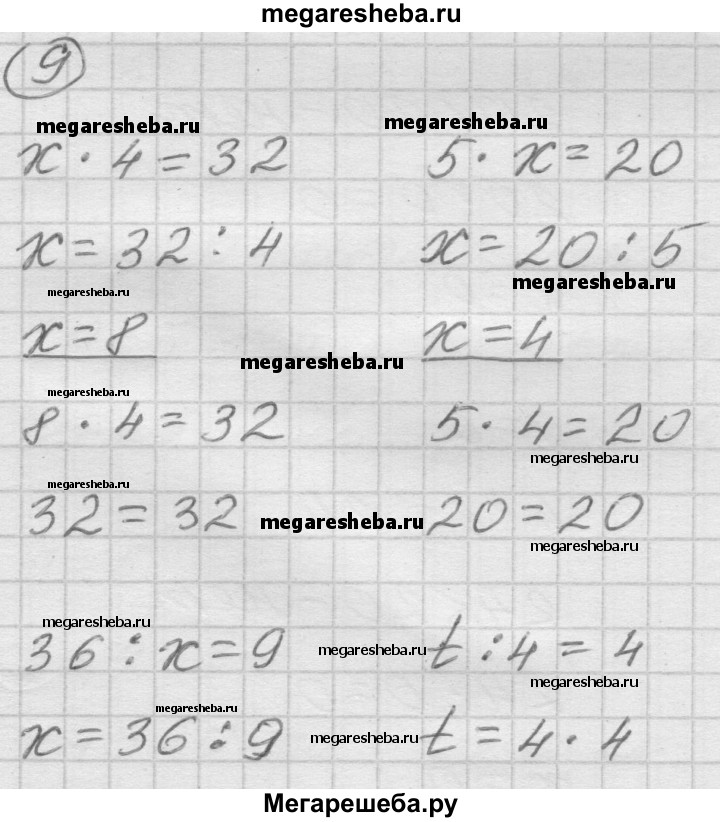 megaresheba.ru
9
megaresheba.ru megaresheba.ru
x · 4 = 32 5 · x = 20
x = 32 : 4 x = 20 : 5
megaresheba.ru megaresheba.ru
x = 8 x = 4
megaresheba.ru
megaresheba.ru
8 · 4 = 32 5 · 4 = 20
megaresheba.ru
megaresheba.ru
32 = 32 megaresheba.ru 20 = 20
megaresheba.ru
megaresheba.ru
36 : x = 9 megaresheba.ru t : 4 = 4
megaresheba.ru
megaresheba.ru
x = 36 : 9 megaresheba.ru t = 4 · 4
Мегарешеба.ру